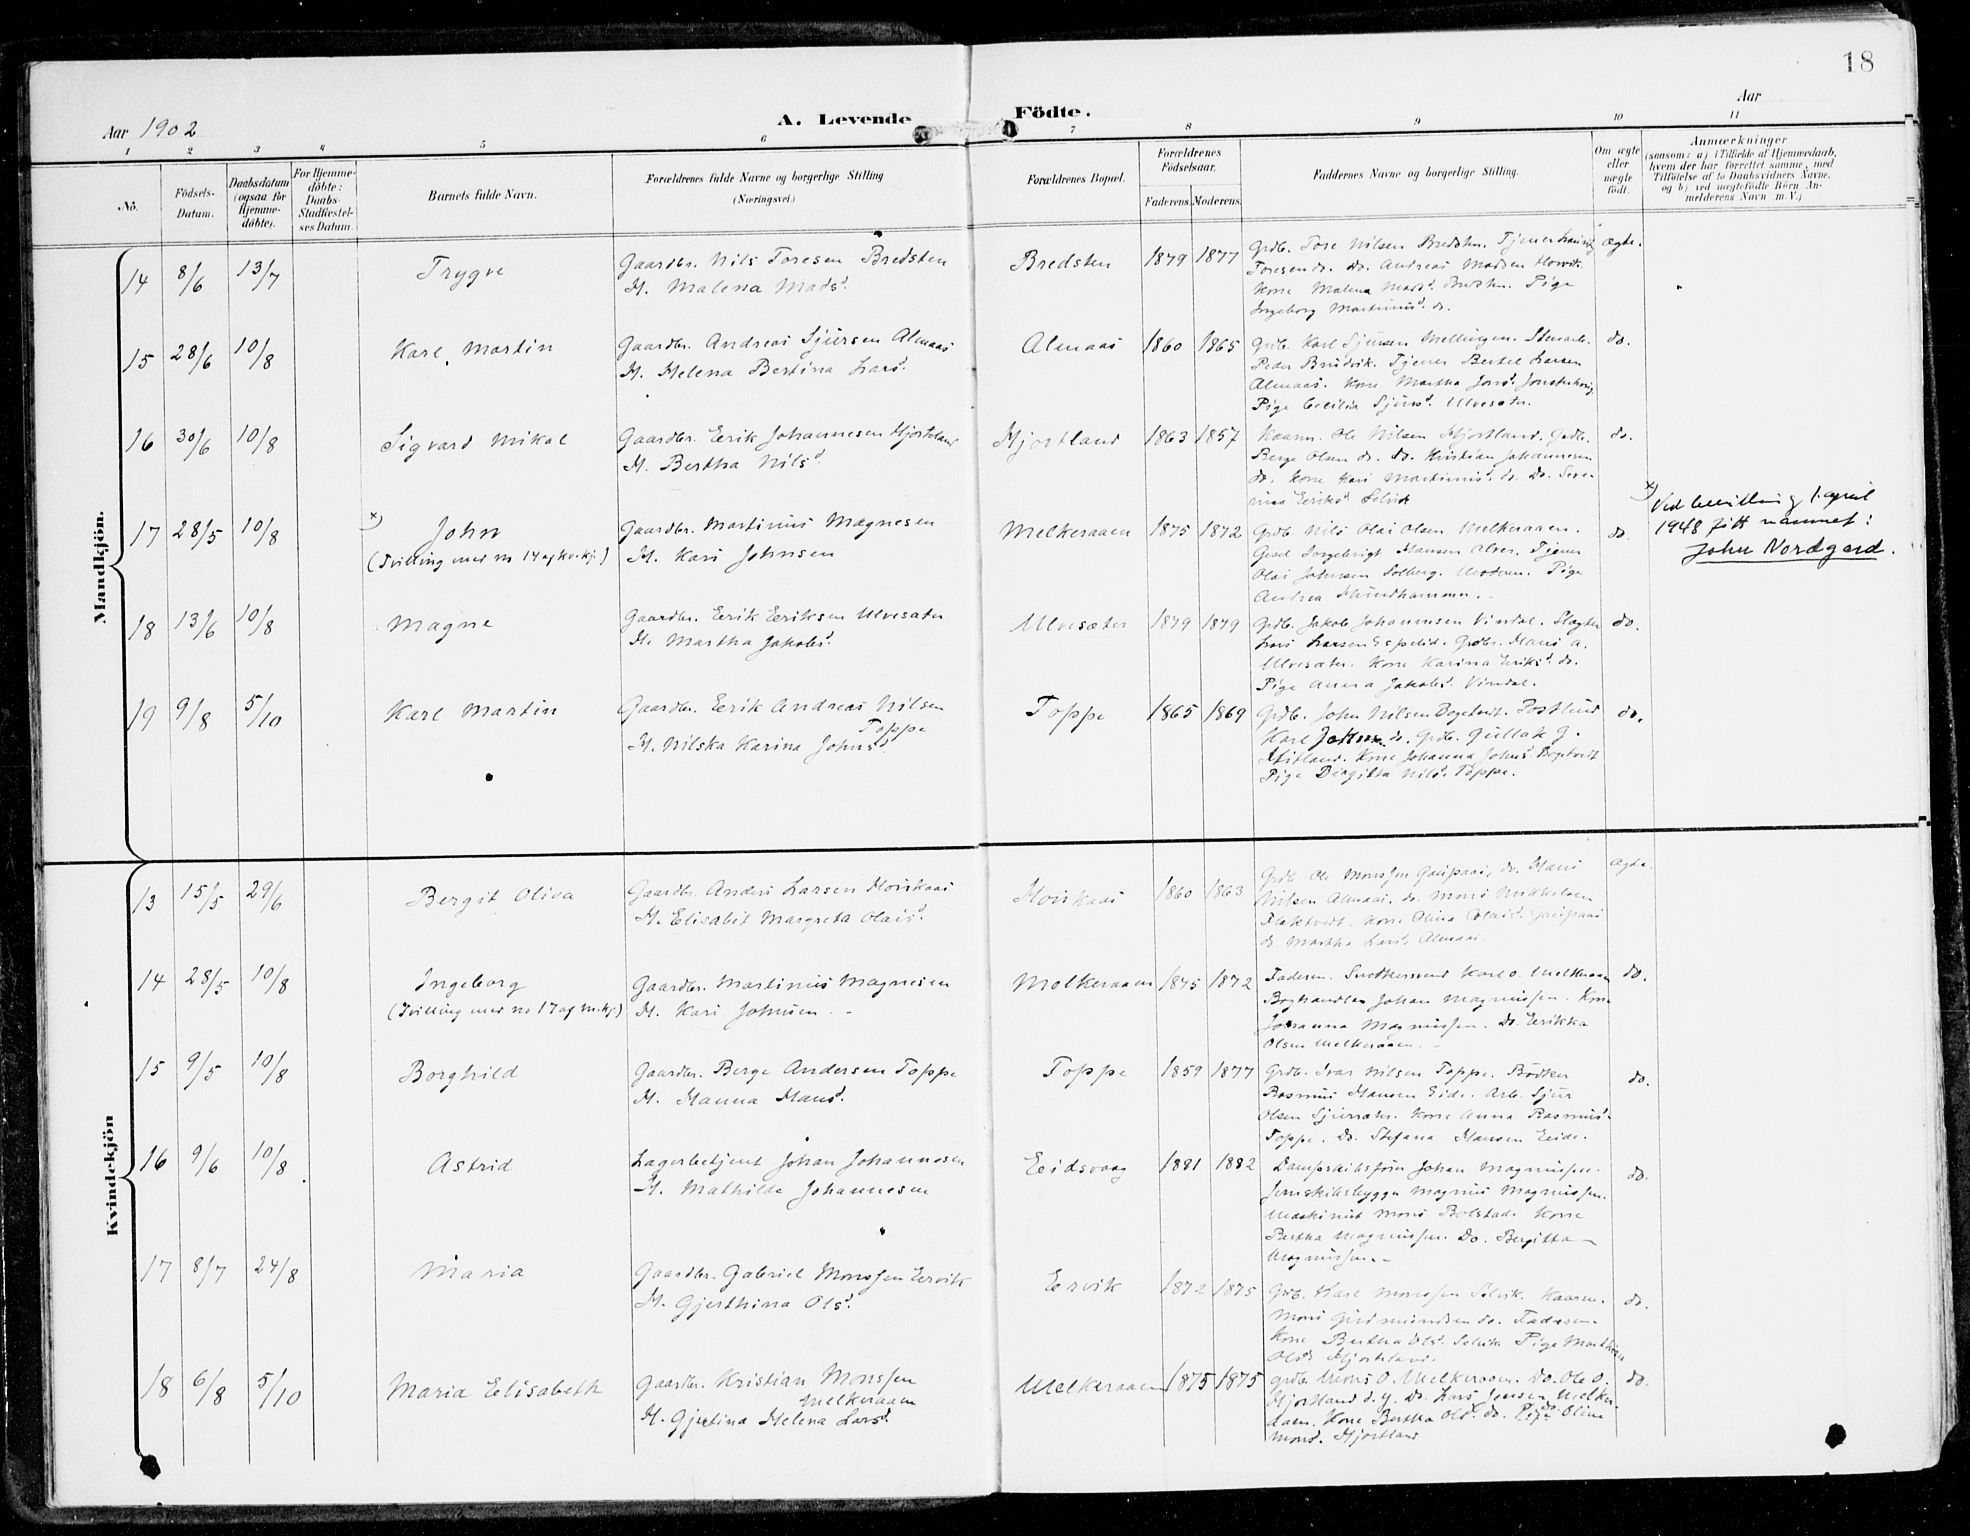 18
Aar 1902
A. Levende Födte.
Aar
1 2 3 4 5 6 7 8 9 10 11
No.
Födsels-Datum.
Daabsdatum (ogsaa for Hjemme-döbte).
For Hjemme-döbte: Daabs-Stadfæstel-ses Datum.
Barnets fulde Navn.
Forældrenes fulde Navne og borgerlige Stilling (Næringsvei.)
Forældrenes Bopæl.
Forældrenes Födselsaar.
Faderens. Moderens.
Faddernes Navne og borgerlige Stilling.
Om ægte eller uægte födt.
Anmærkninger
(saasom: a) i Tilfælde af Hjemmedaab, hvem der har forrettet samme, med Tilföielse af to Daabsvidners Navne, og b) ved uægtefödte Börn An-melderens Navn m. V.)
Mandkjön.
14 8/6 13/7 Trygve
Gaardbr. Nils Toresen Bredsten
H. Malena Madsd.
Bredsten 1879 1877
Grdb. Tore Nilsen Bredsten. Tjener
Toresen do. do. Andreas Madsen
Kone Malena Madsd. Bredsten. Pige
Ingeborg Martinusd. do.
ægte.
15 28/6 10/8 Karl Martin
Gaardbr. Andreas Sjursen Almaas
H. Helena Bertina Larsd.
Almaas 1860 1865
Grdb. Karl Sjursen Mellingen. Stenarb.
Peder Brudvik. Tjener Bertel Larsen
Almaas. Kone Martha Jonsd.
Pige Cecilia Sjursd. Ulvesæter.
do.
16 30/6 10/8 Sigvard Mikal
Gaardbr. Eerik Johannesen Hjortland
H. Bertha Nilsd.
Hjortland 1863 1857
Kaarm. Ole Nilsen Hjortland. Grdb.
Berge Olsen do. do. Kristian Johannesen
do. Kone Kari Martinusd. do. Do. Seve-
rina Eeriksd. Selvik
do.
17 28/5 10/8 x) John
(Tvilling med no 14 af kv.kj.)
Gaardbr. Martinus Magnesen
H. Kari Johnsen
Melkeraaen 1875 1872
Grdb. Nils Olai Olsen Melkeraaen.
Gsel Ingebrigt Hansen Alver. Tjener
Olai Johnsen Solberg. Moderen. Pige
Andrea Hundhammer.
do.
x) Ved bevilling 1. april
1948 fått navnet:
John Nordgard.
18 13/6 10/8 Magne
Gaardbr. Eerik Eeriksen Ulvesæter
H. Martha Jakobsd.
Ulvesæter 1879 1879
Grdb. Jakob Johannesen Vindal. Slagter
Lars Larsen Espelid. Grdbr. Hans A.
Ulvesæter. Kone Karina Eeriksd. do.
Pige Anna Jakobsd. Vindal.
do.
19 9/8 5/10 Karl Martin
Gaardbr. Eerik Andreas Nilsen
Toppe
H. Nilska Karina Johnsd.
Toppe 1865 1869
Grdb. John Nilsen
Karl Johnsen do. Grdb. Gullak G.
Kone Johanna Johnsd.
Pige Birgitta Nilsd. Toppe.
do.
Kvindekjön
13 15/5 29/6 Bergit Oliva
Gaardbr. Anders Larsen Horikaas
H. Elisabet Margreta Olaisd.
Horikaas 1860 1863
Grdb. Ole Monssen Gaupaas, do. Hans
Nilsen Almaas. do. Mons Mikkelsen
Flaktvedt. Kone Olina Olaisd. Gaupaas
do. Martha Larsd. Almaas.
ægte.
14 28/5 10/8 Ingeborg
(Tvilling med no 17 af m.kj.)
Gaardbr. Martinus Magnesen
H. Kari Johnsen
Melkeraaen 1875 1872
Faderen. Snedkersvend Karl O. Melkeraaen
Boghandler Johan Magnussen. Kone
Johanna Magnussen. Do. Eerikka
Olsen Melkeraaen.
do.
15 9/5 10/8 Borghild
Gaardbr. Berge Andersen Toppe
H. Hanna Hansd.
Toppe 1859 1877
Grdb. Ivar Nilsen Toppe. Bödker
Rasmus Hansen Eide. Arb. Sjur
Olsen. Kone Anna Rasmusd.
Toppe. Do. Stefana Hansen Eeide.
do.
16 9/6 10/8 Astrid
Lagerbetjent Johan Johannesen
H. Mathilde Johannesen
Eeidsvaag 1881 1882
Dampskibsförer Johan Magnussen.
Jernskibsbygger Magnus Magnussen.
Maskinist Mons Bolstad. Kone
Bertha Magnussen. Do. Bergitta
Magnussen.
do.
17 8/7 24/8 Maria
Gaardbr. Gabriel Monssen Eervik
H. Gjerthina Olsd.
Eervik 1872 1875
Grdb. Karl Monssen Selvik. Kaarm.
Mons Gudmundsen do. Faderen.
Kone Bertha Olsd. Selvik. Pige Marthina
Olsd. Hjortland.
do.
18 6/8 5/10 Maria Elisabeth
Gaardbr. Kristian Monssen
Melkeraaen
H. Gjertina Helena Larsd.
Melkeraaen 1875 1875
Grdb. Mons O. Melkeraaen. Do. Ole O.
Hjortland d.y. Do. Lars Jensen Melke-
raaen. Kone Bertha Olsd. do. Pige Olina
Monsd. Hjortland
do.